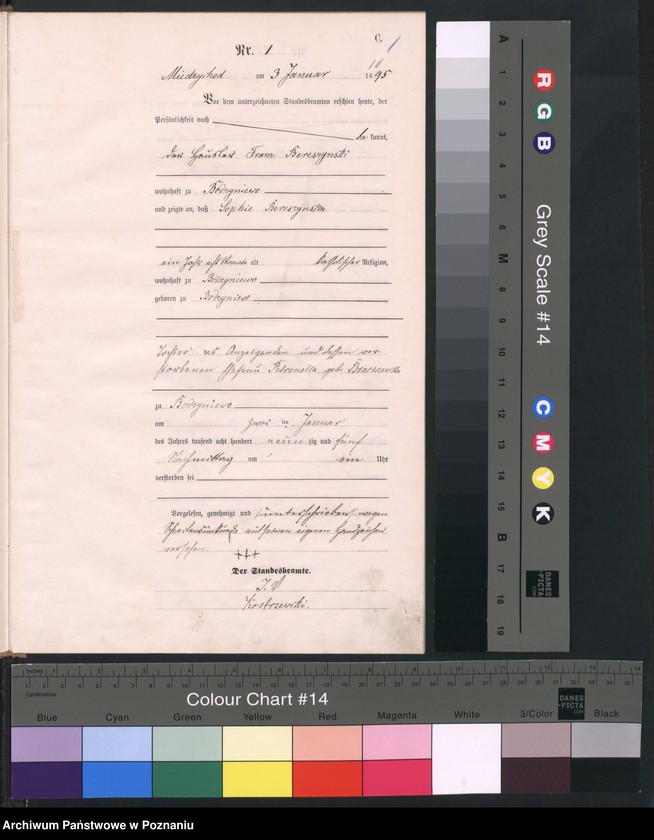 C.
1
Nr. 1
10
Miedzychod am 3 Januar 1895
Vor dem unterzeichneten Standesbeamten erschien heute, der
Persönlichkeit nach
be kannt,
der Häusler Franz Bereszynski
wohnhaft zu Bodzyniewo
und zeigte an, daß Sophie Bereszynska
ein Jahr acht Monate alt katholischer Religion,
wohnhaft zu Bodzyniewo
geboren zu Bodzyniewo
Tochter des Anzeigenden und dessen ver-
storbenen Ehefrau Petronella geb.
zu Bodzyniewo
am zwei ten Januar
des Jahres tausend acht hundert neun zig und fünf
Nachmittag um ein Uhr
verstorben sei
Vorgelesen, genehmigt und (unterschrieben) wegen
Schreibensunkunde mit seinem eigenen Handzeichen
versehen.
+++
Der Standesbeamte.
J. V.
Kostrzewski.
A
1
2
3
4
5
6
M
8
9
10
11
12
13
14
15
B
17
18
19
R
G
B
Grey Scale #14
C
M
Y
K
DANES
-PICTA
.COM
Inches
1
2
3
4
5
6
7
8
9
10
11
12
13
14
Centimetres
Colour Chart #14
DANES
-PICTA
.COM
Blue Cyan Green Yellow Red Magenta White 3/Color Black
Archiwum Państwowe w Poznaniu